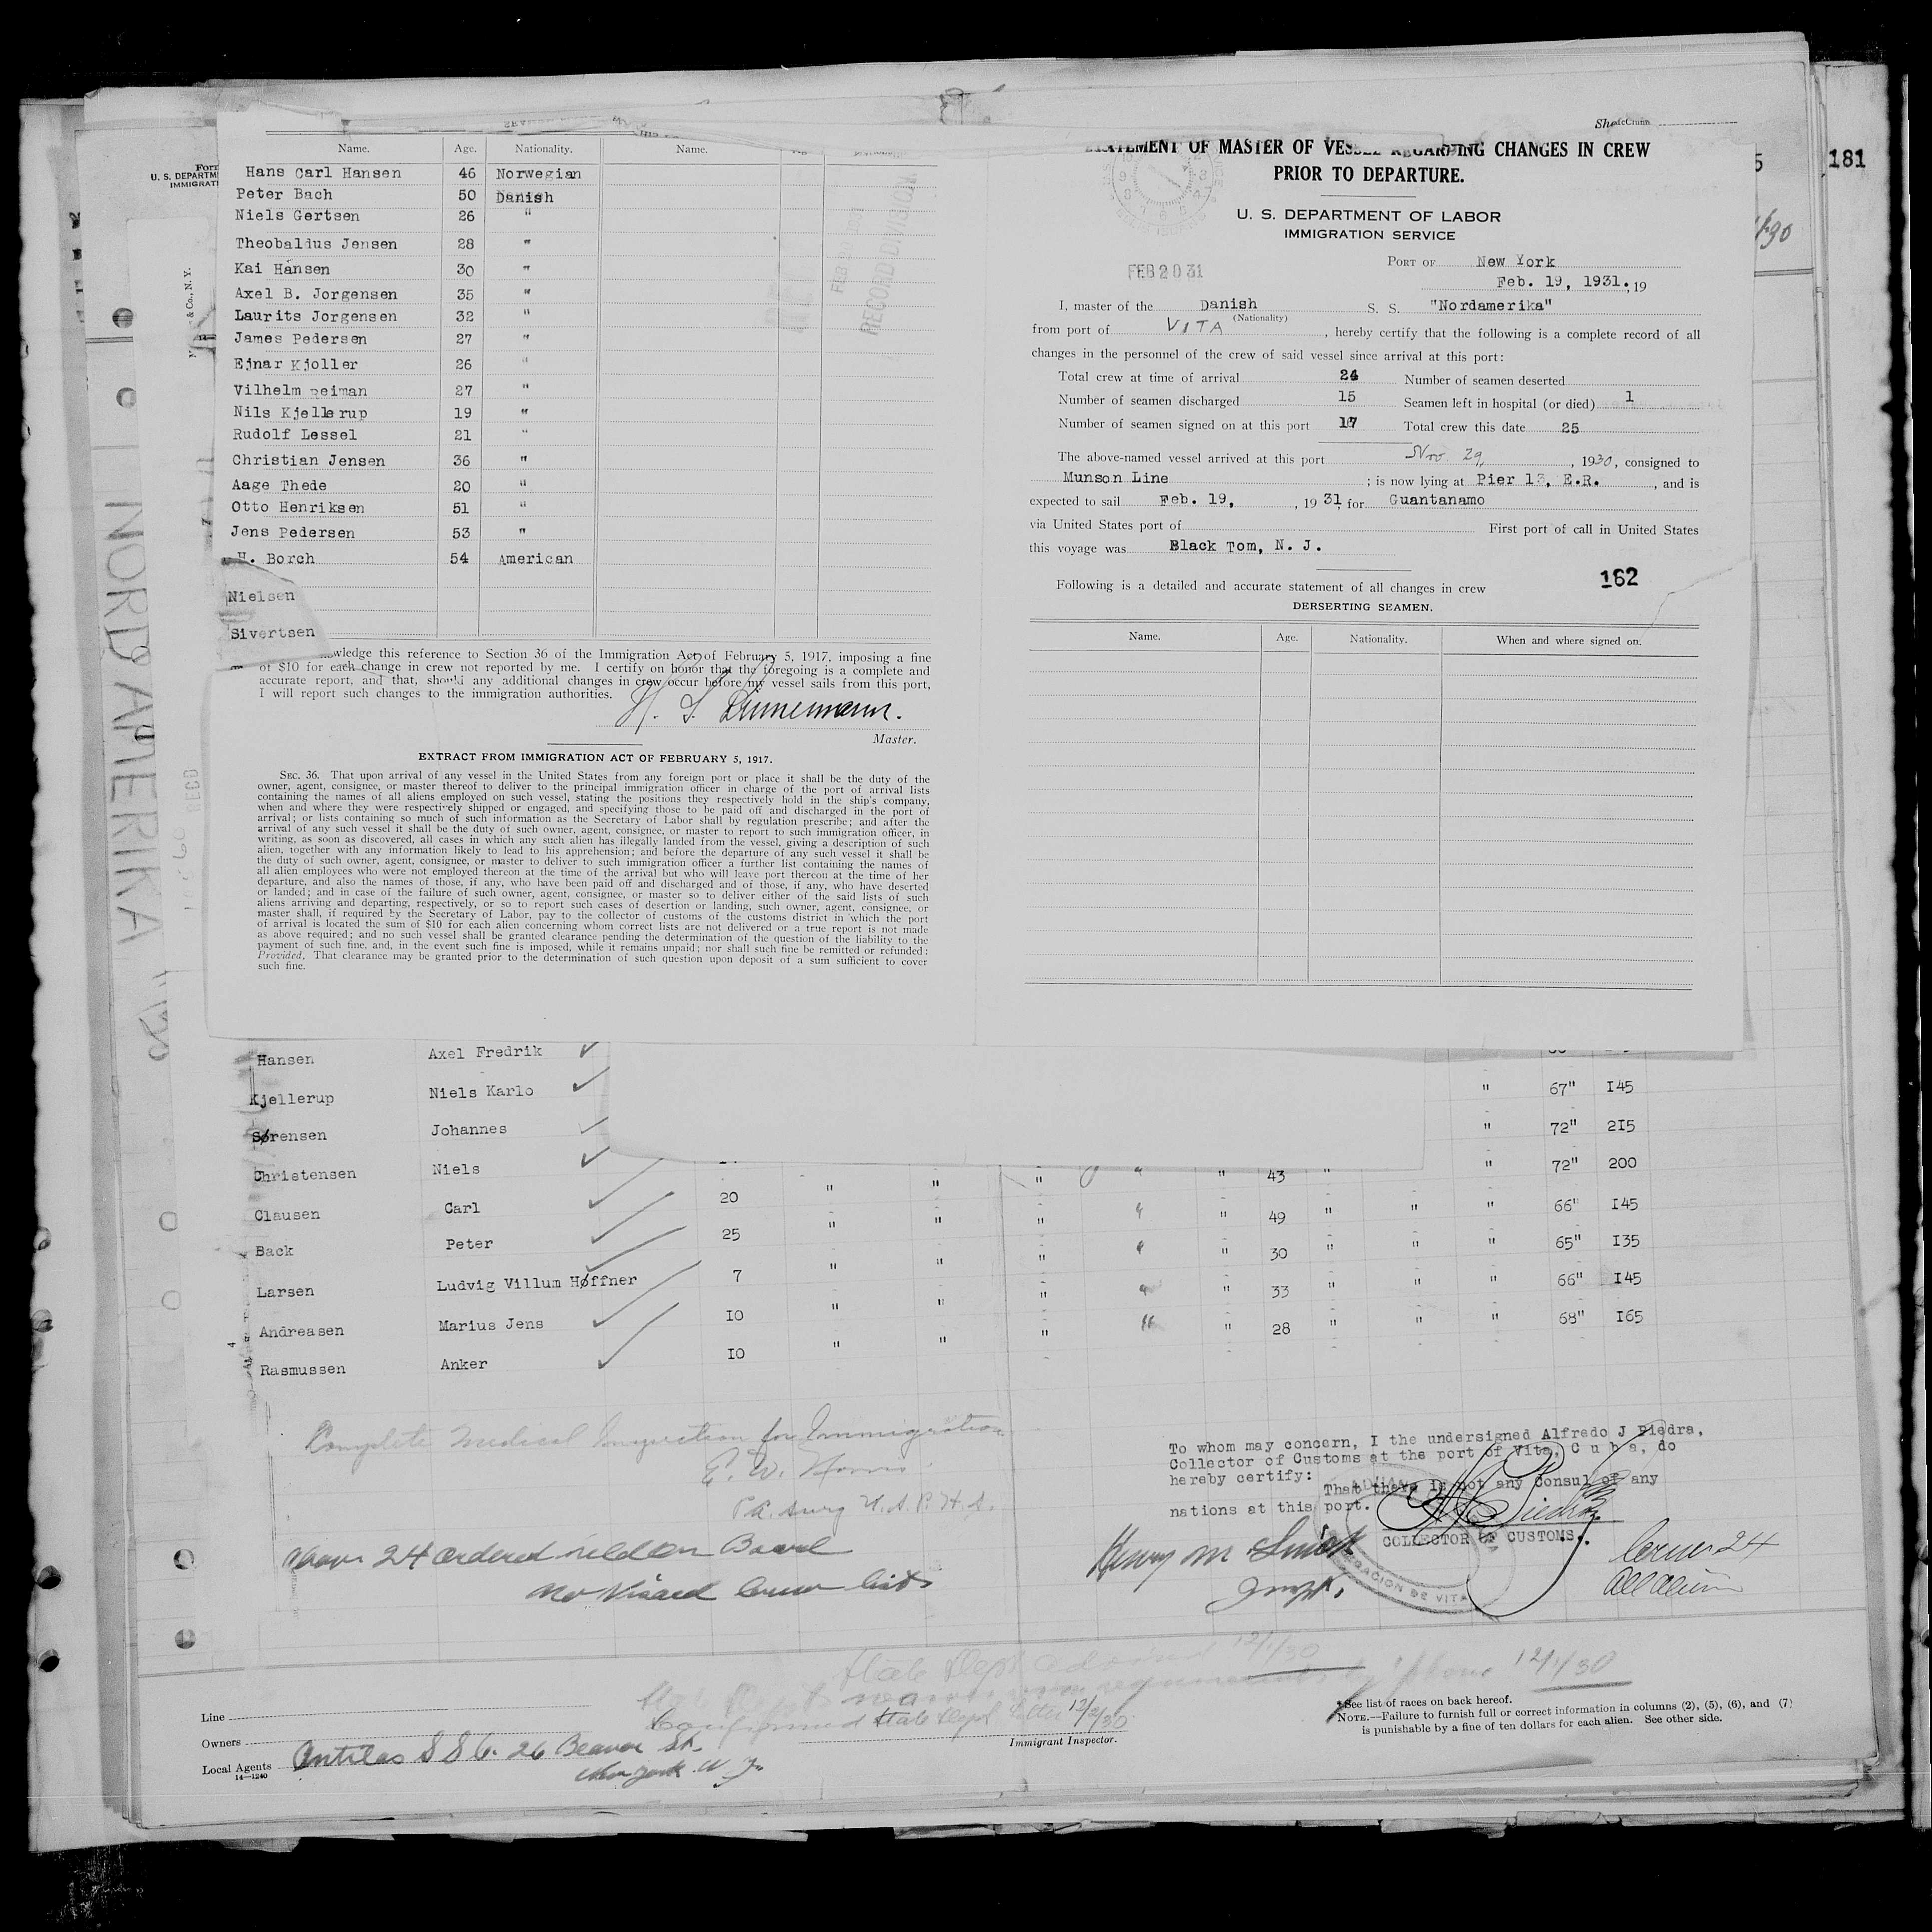 Form
U. S. DEPARTM
IMMIGRATI
& Co., N. Y.
NORD AMERIKA
181
Name. Age. Nationality. Name.
Hans Carl Hansen 46 Norwegian
Peter Bach 50 Danish
Niels Gertsen 26 "
Theobaldus Jensen 28 "
Kai Hansen 30 "
Axel B. Jorgensen 35 "
Laurits Jorgensen 32 "
James Pedersen 27 "
Ejnar Kjoller 26 "
Vilhelm Reiman 27 "
Nils Kjellerup 19 "
Rudolf Lessel 21 "
Christian Jensen 36 "
Aage Thede 20 "
Otto Henriksen 51 "
Jens Pedersen 53 "
H. Borch 54 American
Nielsen
Sivertsen
RECORD DIVISION
wledge this reference to Section 36 of the Immigration Act of February 5, 1917, imposing a fine
of $10 for each change in crew not reported by me. I certify on honor that the foregoing is a complete and
accurate report, and that, should any additional changes in crew occur before my vessel sails from this port,
I will report such changes to the immigration authorities.
Master.
EXTRACT FROM IMMIGRATION ACT OF FEBRUARY 5, 1917.
SEC. 36. That upon arrival of any vessel in the United States from any foreign port or place it shall be the duty of the
owner, agent, consignee, or master thereof to deliver to the principal immigration officer in charge of the port of arrival lists
containing the names of all aliens employed on such vessel, stating the positions they respectively hold in the ship's company,
when and where they were respectively shipped or engaged, and specifying those to be paid off and discharged in the port of
arrival; or lists containing so much of such information as the Secretary of Labor shall by regulation prescribe; and after the
arrival of any such vessel it shall be the duty of such owner, agent, consignee, or master to report to such immigration officer, in
writing, as soon as discovered, all cases in which any such alien has illegally landed from the vessel, giving a description of such
alien, together with any information likely to lead to his apprehension; and before the departure of any such vessel it shall be
the duty of such owner, agent, consignee, or master to deliver to such immigration officer a further list containing the names of
all alien employees who were not employed thereon at the time of the arrival but who will leave port thereon at the time of her
departure, and also the names of those, if any, who have been paid off and discharged and of those, if any, who have deserted
or landed; and in case of the failure of such owner, agent, consignee, or master so to deliver either of the said lists of such
aliens arriving and departing, respectively, or so to report such cases of desertion or landing, such owner, agent, consignee, or
master shall, if required by the Secretary of Labor, pay to the collector of customs of the customs district in which the port
of arrival is located the sum of $10 for each alien concerning whom correct lists are not delivered or a true report is not made
as above required; and no such vessel shall be granted clearance pending the determination of the question of the liability to the
payment of such fine, and, in the event such fine is imposed, while it remains unpaid; nor shall such fine be remitted or refunded:
Provided, That clearance may be granted prior to the determination of such question upon deposit of a sum sufficient to cover
such fine.
STATEMENT OF MASTER OF VESSEL REGARDING CHANGES IN CREW
PRIOR TO DEPARTURE.
U. S. DEPARTMENT OF LABOR
IMMIGRATION SERVICE
FEB 20 31
PORT OF New York
Feb. 19, 1931. , 19
I, master of the Danish S. S. "Nordamerika"
(Nationality)
from port of VITA , hereby certify that the following is a complete record of all
changes in the personnel of the crew of said vessel since arrival at this port:
Total crew at time of arrival 24 Number of seamen deserted
Number of seamen discharged 15 Seamen left in hospital (or died) 1
Number of seamen signed on at this port 17 Total crew this date 25
The above-named vessel arrived at this port Nov. 29, , 1930, consigned to
Munson Line ; is now lying at Pier 13, E.R. , and is
expected to sail Feb. 19, , 19 31, for Guantanamo
via United States port of First port of call in United States
this voyage was Black Tom, N. J.
162
Following is a detailed and accurate statement of all changes in crew
DERSERTING SEAMEN.
Name. Age. Nationality. When and where signed on.
Hansen Axel Fredrik
Kjellerup Niels Karlo " 67" I45
Sørensen Johannes " 72" 2I5
Christensen Niels 43 " " 72" 200
Clausen Carl 20 " " " " 49 " " " 66" I45
Back Peter 25 " " " " 30 " " " 65" I35
Larsen Ludvig Villum Høffner 7 " " " " 33 " " " 66" I45
Andreasen Marius Jens I0 " " " " 28 " " " 68" I65
Rasmussen Anker I0 " "
Complete Medical Inspection for Immigration
E. W. Norris
P.A. Surg U.S.P.H.S.
Above 24 ordered held on Board
No Visaed Crew list
To whom may concern, I the undersigned Alfredo J Piedra,
Collector of Customs at the port of Vita, C u b a, do
hereby certify:
That there is not any Consul of any
nations at this port.
COLLECTOR OF CUSTOMS.
Henry M Smick
Inspt.
Crew 24
All Aliens
State Dept advised 12/1/30
by phone 12/1/30
Confirmed State Dept letter 12/2/30
Immigrant Inspector.
Line
Owners
Local Agents Antilas S S Co. 26 Beaver St.
New York N. Y.
14—1240
*See list of races on back hereof.
NOTE.—Failure to furnish full or correct information in columns (2), (5), (6), and (7)
is punishable by a fine of ten dollars for each alien. See other side.